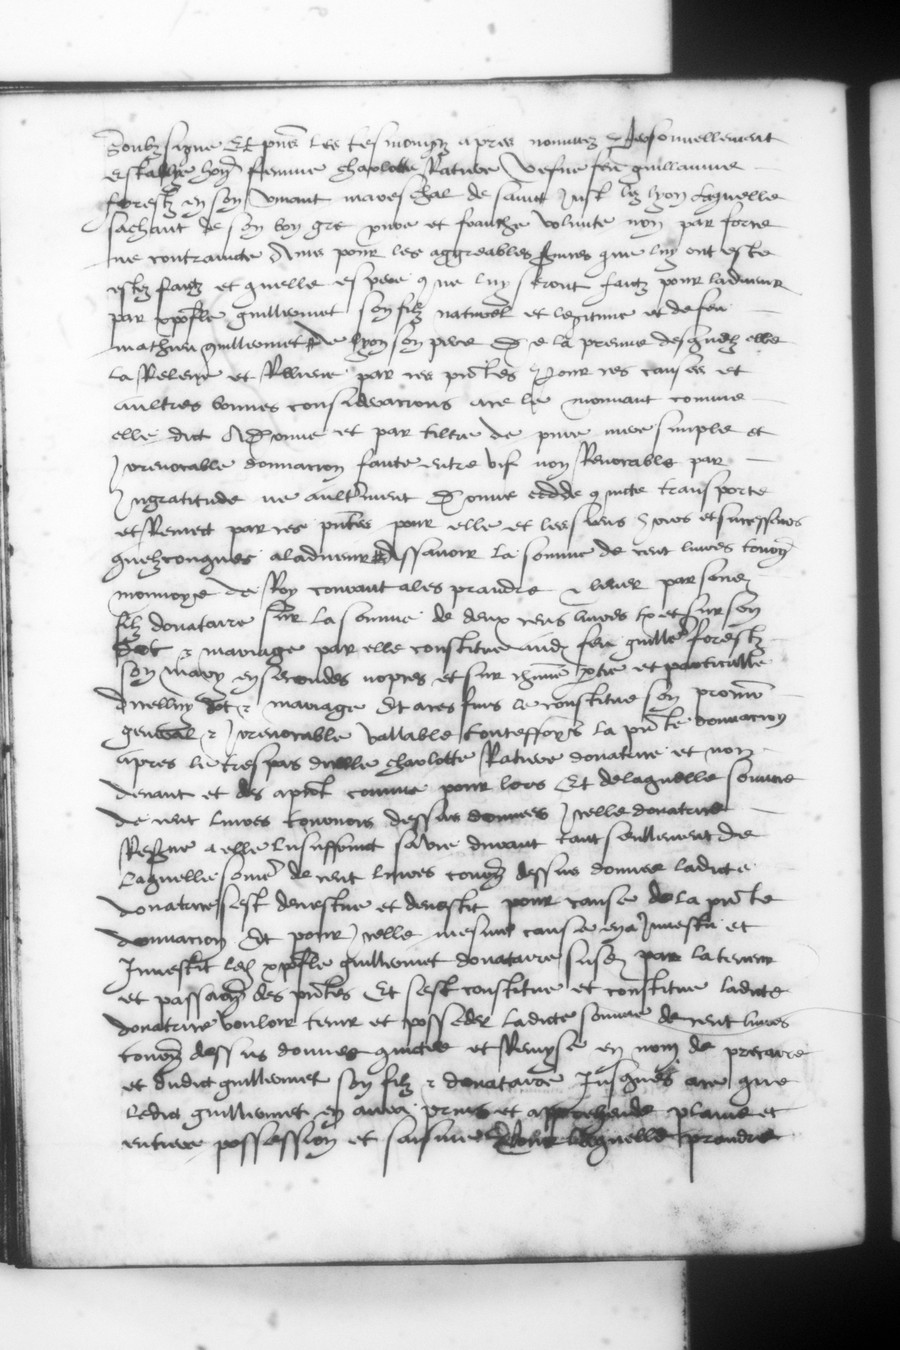 Soubz signe Et pnts les tesmoingz apres nommez Personnellement
establye hon femme Charlotte Ratiere vefve feu guillaume
forestz en son vivant mareschal de sainct Just lez lyon Laquelle
sachant de son bon gre pure et franche volunte non par force
ne contraincte Ains pour les aggreables que luy ont este
estez faitz et quelle espere q ne luy seront faitz pour ladvenir
par xpofle guillermet son filz naturel et legitime et de feu
mathieu guillermet de lyon son pere De la preuve desquelz elle
la Releve et Relieve par ces pntes Pour ces causes et
aultres bonnes consideracions ace le mouvant comme
elle dict A Donne et par tiltre de pure mere simple et
Irrevocable donnacion faicte entre vif non Revocable par
Ingratitude ne aultrement Donne cedde quicte transporte
et Remect par ces pntes pour elle et les siens hoirs et successeurs
quelzconques aladvenir Assavoir la somme de cent livres tournoys
monnoye de Roy courant ales prandre & lever par sond
filz donataire sur la somme de deux cens livres tz et sur son
dot & mariage par elle constitue aud feu guille forestz
son mary en secondes nopces et sur chune ptie et particulle
dicelluy dot & mariage Et aces fins le constitue son procur
general & Irrevocable vallable touteffoys la pnte donnacion
apres le trespas dicelle Charlotte Ratiere donatrice et non
devant et des aprest comme pour lors Et de laquelle somme
de cent livres tournois dessus donnees Icelle donatrice
Reserve a elle lusuffruict sa vie durant tant seullement De
Laquelle some de cent livres tournoys dessus donnee ladicte
donatrice sest devestue et devestit pour cause de la pnte
donnacion Et pour Icelle mesme cause en a Investu et
Investit led xpofle guillermet donataire susd par la teneur
et passacion des pntes Et sest constitue et constitue ladicte
donatrice vouloir tenir et posseder ladicte somme de cent livres
tournoys dessus donnee quictee et Remyse en nom de precaire
et dudict guillermet son filz & donataire Jusques ace que
Ledict guillermet en aura prins et apprehende plaine et
entiere possession et saisine Pour laquelle prandre